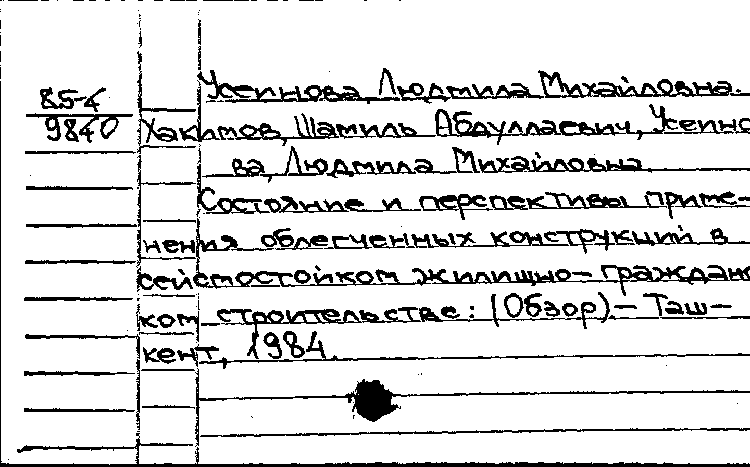 Усеинова, Людмила Михайловна.
85-4
9840 Хакимов, Шамиль Абдуллаевич, Усеино
ва, Людмила Михайловна.
Состояние и перспективы приме-
нения облегченных конструкций в
сейсмостойком жилищно-граждано
ком строительстве: (Обзор)- Таш-
кент, 1984.